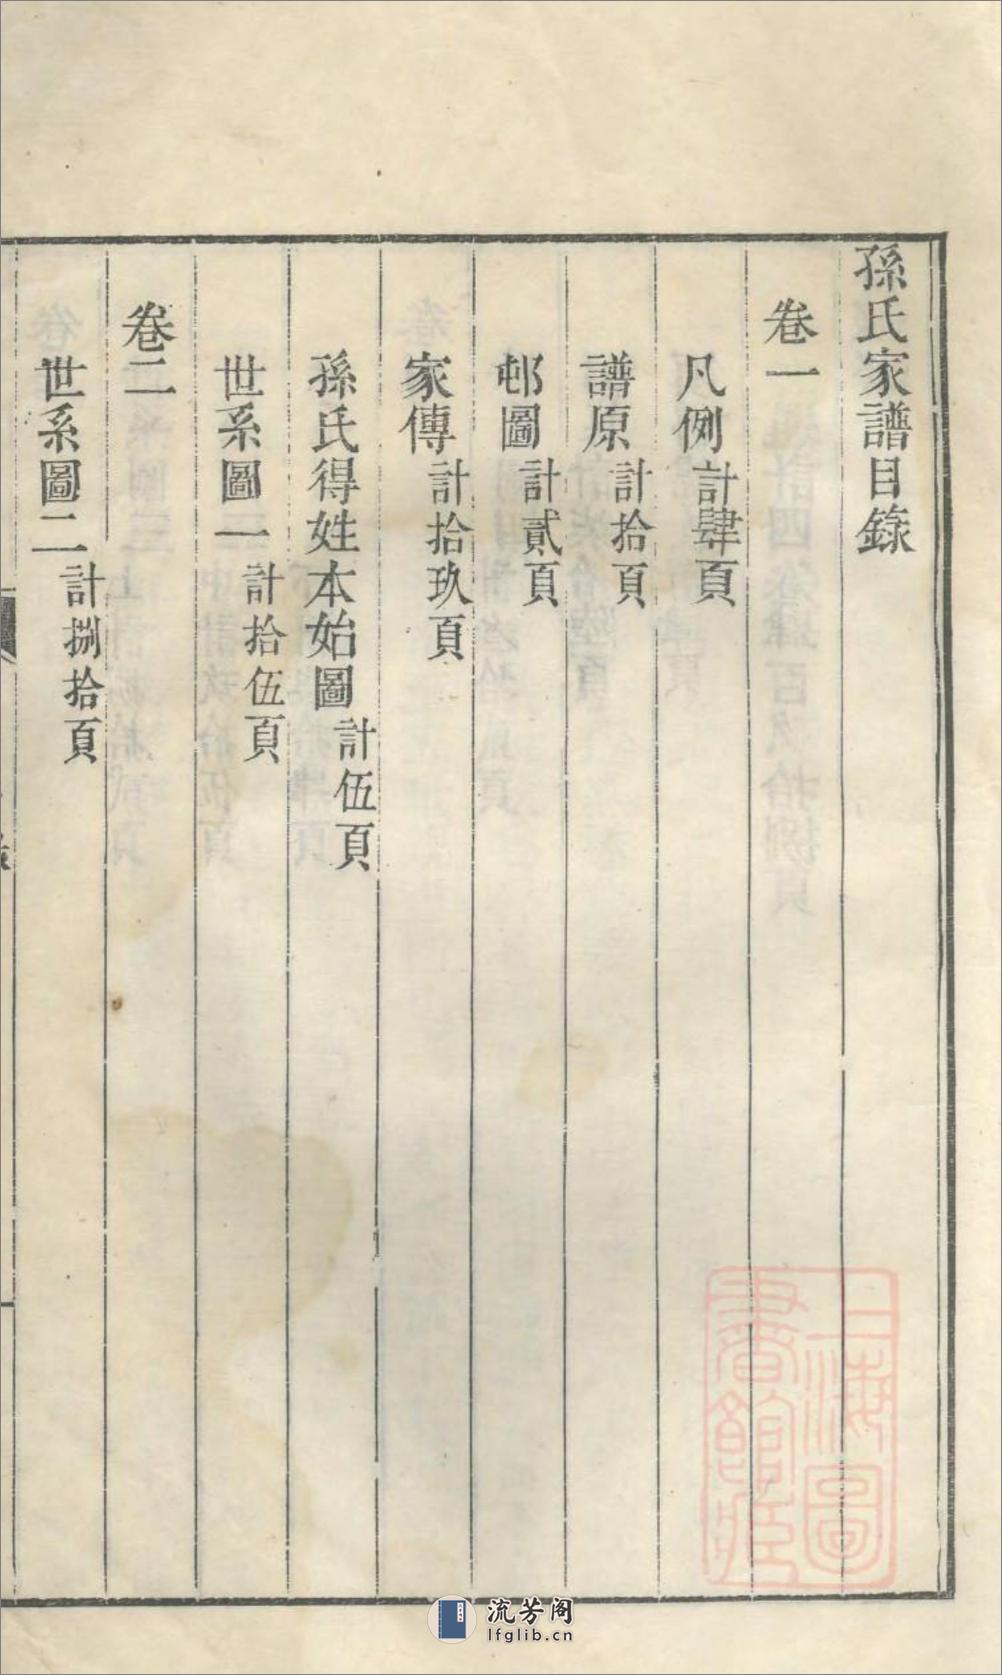 孫氏家譜目錄
卷一
凡例計肆頁
譜原計拾頁
邨圖計貳頁
家傳計拾玖頁
孫氏得姓本始圖計伍頁
世系圖一計拾伍頁
卷二
世系圖二計捌拾頁
上海圖
書館藏
流芳阁
lfglib.cn